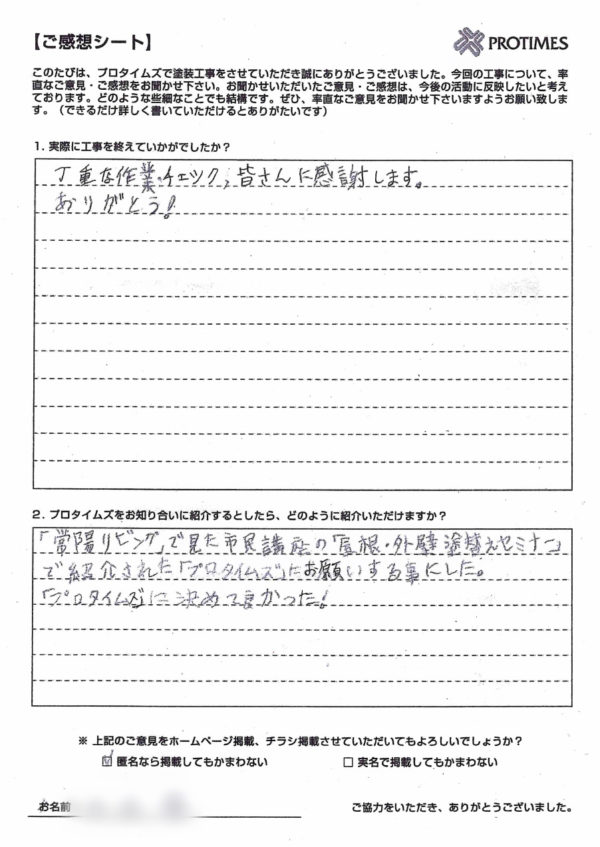 【ご感想シート】
PROTIMES
このたびは、プロタイムズで塗装工事をさせていただき誠にありがとうございました。今回の工事について、率
直なご意見・ご感想をお聞かせ下さい。お聞かせいただいたご意見・ご感想は、今後の活動に反映したいと考え
ております。どのような些細なことでも結構です。ぜひ、率直なご意見をお聞かせ下さいますようお願い致しま
す。（できるだけ詳しく書いていただけるとありがたいです）
1. 実際に工事を終えていかがでしたか？
丁重な作業・チェック，皆さんに感謝します。
ありがとう！
2. プロタイムズをお知り合いに紹介するとしたら、どのように紹介いただけますか？
「常陽リビング」で見た市民講座の「屋根・外壁塗替えセミナー」
で紹介された「プロタイムズ」にお願いする事にした。
「プロタイムズ」に決めて良かった！
※ 上記のご意見をホームページ掲載、チラシ掲載させていただいてもよろしいでしょうか？
☑ 匿名なら掲載してもかまわない
□ 実名で掲載してもかまわない
お名前
ご協力をいただき、ありがとうございました。